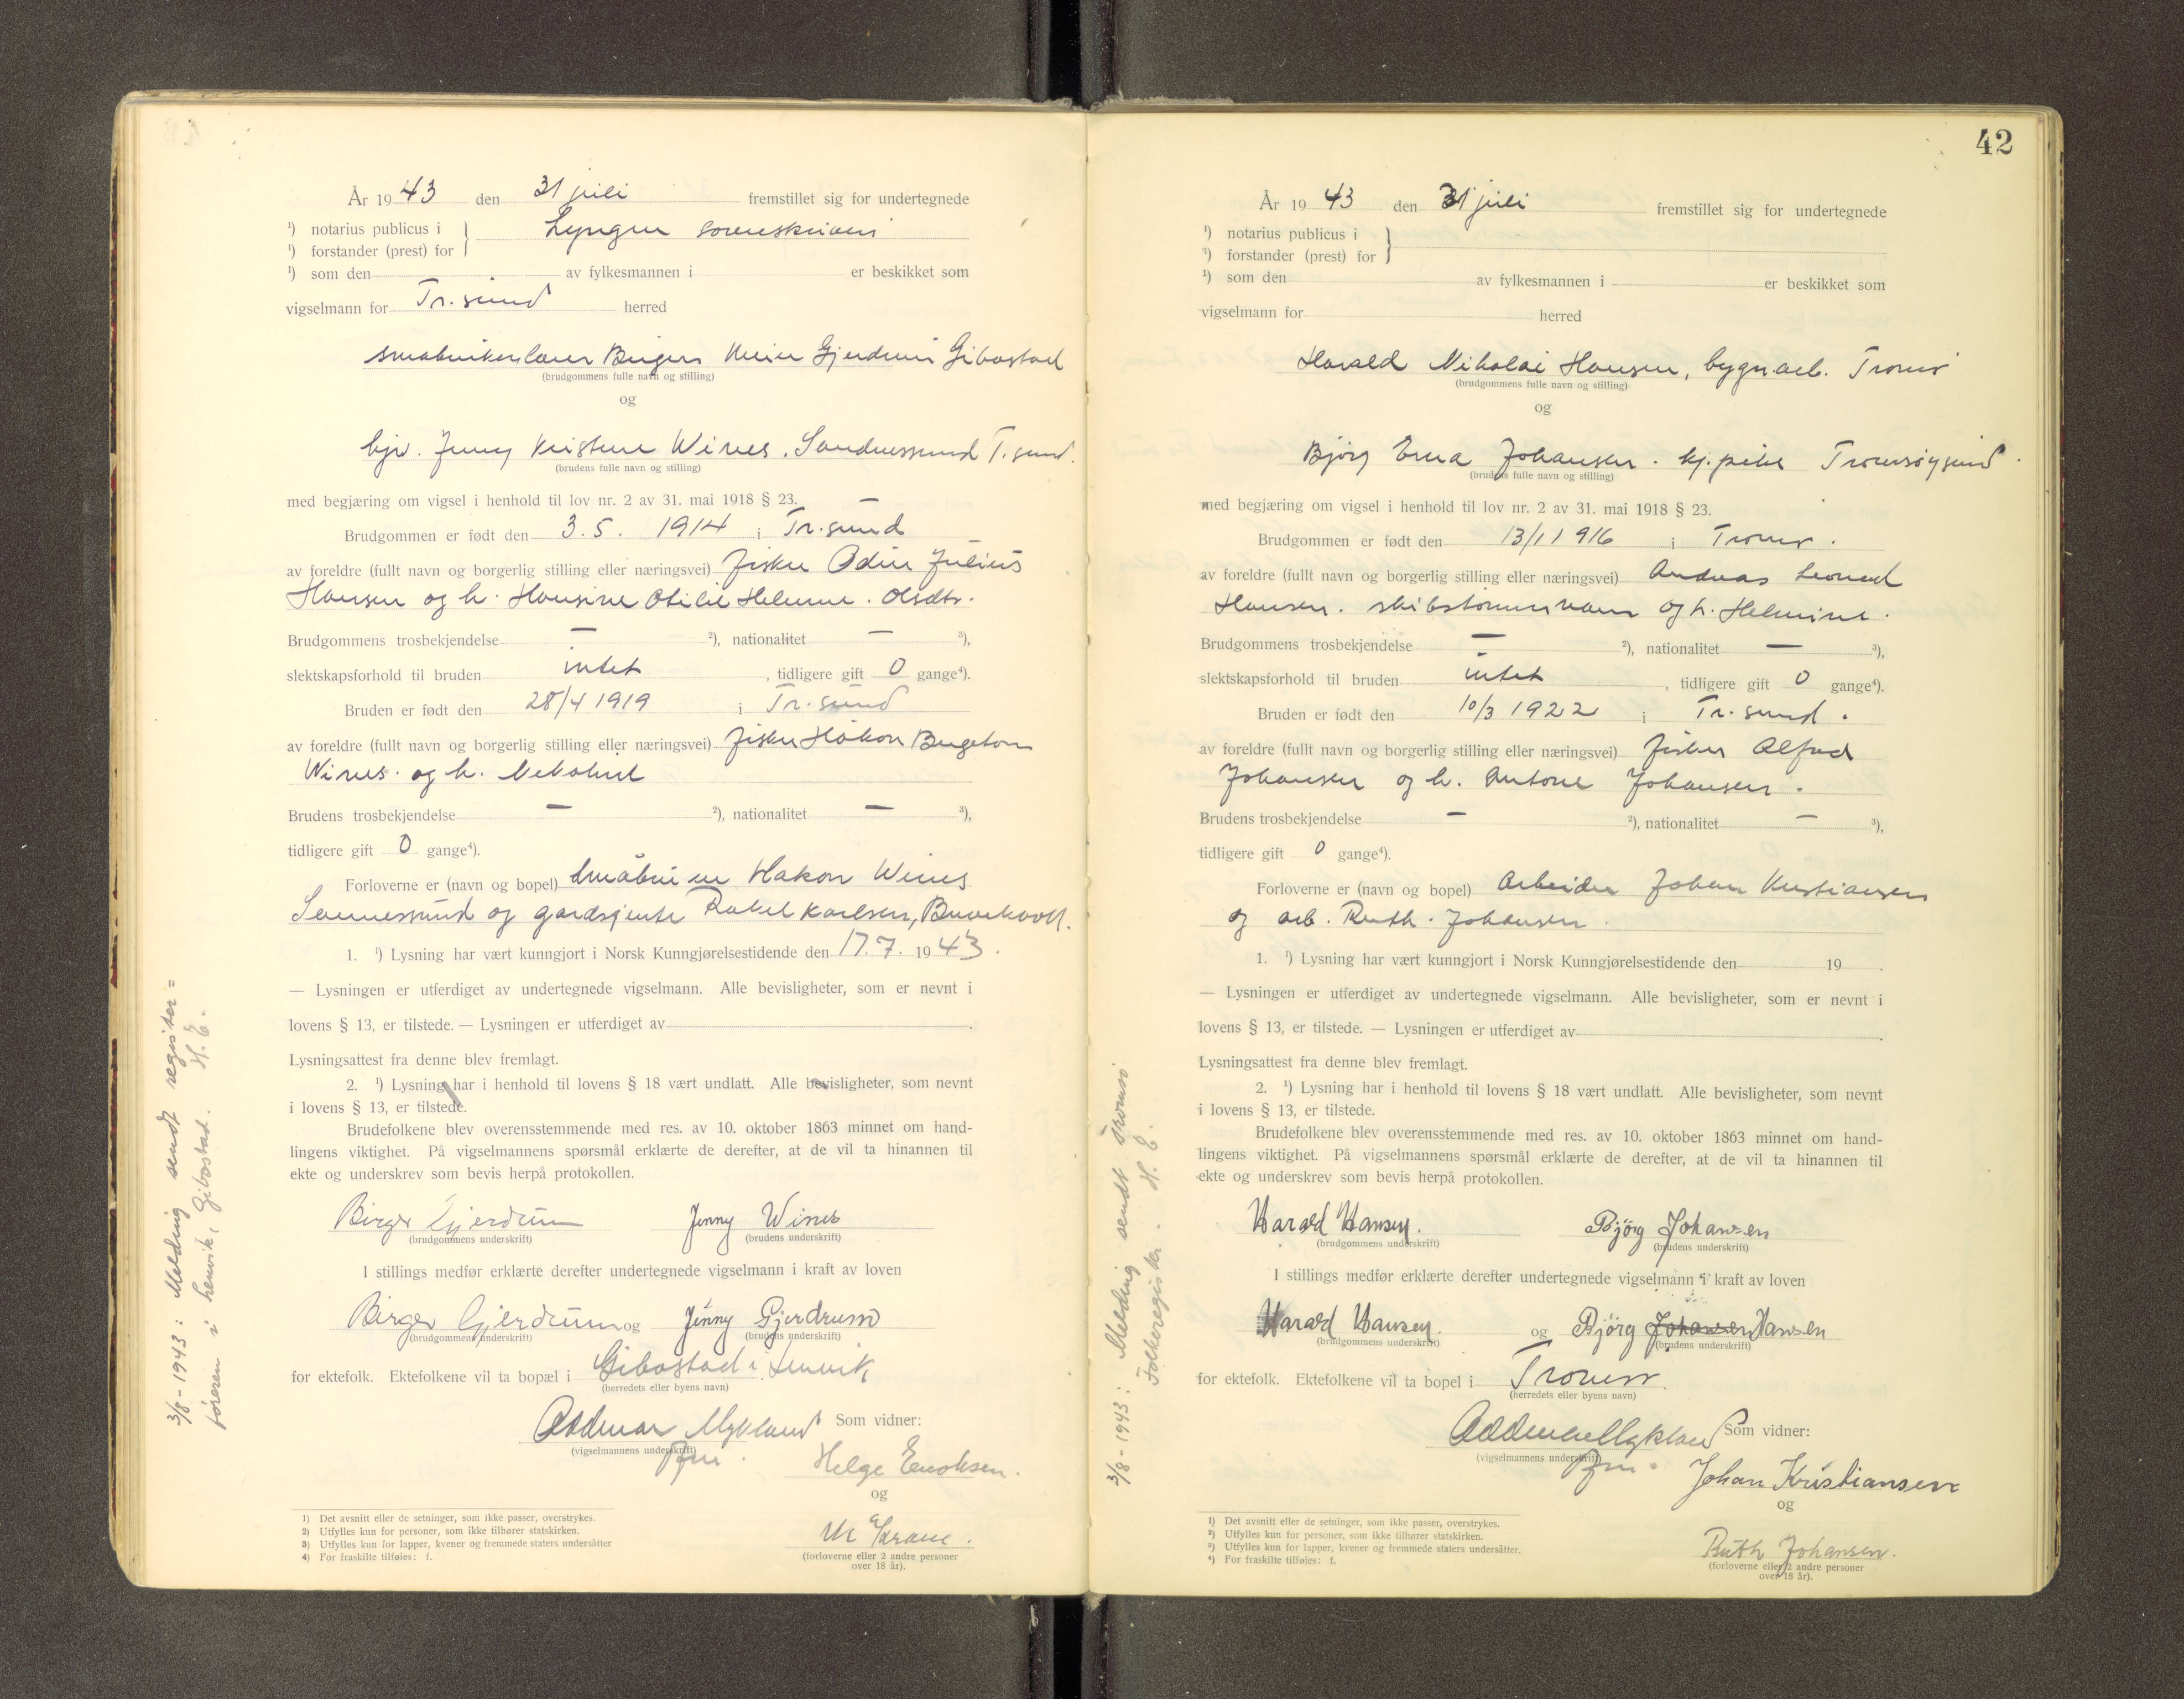 År 1943 den 31 juli fremstillet sig for undertegnede
¹) notarius publicus i } Lyngen sorenskriveri
¹) forstander (prest) for
¹) som den av fylkesmannen i er beskikket som
vigselmann for Tr.sund herred
Birger Gjerdrum Gibostad
(brudgommens fulle navn og stilling)
og
Jenny Kristine Wines. T. sund.
(brudens fulle navn og stilling)
med begjæring om vigsel i henhold til lov nr. 2 av 31. mai 1918 § 23. —
Brudgommen er født den 3.5. 1914 i Tr.sund
av foreldre (fullt navn og borgerlig stilling eller næringsvei) fisker Odin Julius
Hansen og h. Hansine Otilie Helene. Olsdtr.
Brudgommens trosbekjendelse — ²), nationalitet — ³),
slektskapsforhold til bruden intet, tidligere gift 0 gange⁴).
Bruden er født den 28/4 1919 i Tr.sund
av foreldre (fullt navn og borgerlig stilling eller næringsvei) fisker Håkon
Wines. og h.
Brudens trosbekjendelse — ²), nationalitet — ³),
tidligere gift 0 gange⁴).
Forloverne er (navn og bopel) Hakon Wines
og gardsjente Rakel Karlsen,
1. ¹) Lysning har vært kunngjort i Norsk Kunngjørelsestidende den 17.7. 1943.
— Lysningen er utferdiget av undertegnede vigselmann. Alle bevisligheter, som er nevnt i
lovens § 13, er tilstede. — Lysningen er utferdiget av .
Lysningsattest fra denne blev fremlagt.
2. ¹) Lysning har i henhold til lovens § 18 vært undlatt. Alle bevisligheter, som nevnt
i lovens § 13, er tilstede.
Brudefolkene blev overensstemmende med res. av 10. oktober 1863 minnet om hand-
lingens viktighet. På vigselmannens spørsmål erklærte de derefter, at de vil ta hinannen til
ekte og underskrev som bevis herpå protokollen.
Birger Gjerdrum Jenny Wines
(brudgommens underskrift) (brudens underskrift)
I stillings medfør erklærte derefter undertegnede vigselmann i kraft av loven
Birger Gjerdrum og Jenny Gjerdrum
(brudgommens underskrift) (brudens underskrift)
for ektefolk. Ektefolkene vil ta bopæl i Gibostad i Lenvik
(herredets eller byens navn)
Oddmar Mykland Som vidner:
(vigselmannens underskrift)
Helge Enoksen.
og
(forloverne eller 2 andre personer
over 18 år).
1) Det avsnitt eller de setninger, som ikke passer, overstrykes.
2) Utfylles kun for personer, som ikke tilhører statskirken.
3) Utfylles kun for lapper, kvener og fremmede staters undersåtter
4) For fraskilte tilføies: f.
3/8-1943: Melding sendt register=
føreren i Lenvik, Gibostad. H.E.
42
År 1943 den 31 juli fremstillet sig for undertegnede
¹) notarius publicus i }
¹) forstander (prest) for
¹) som den av fylkesmannen i er beskikket som
vigselmann for herred
Harald Nikolai Hansen, bygn.arb. Tromsø
(brudgommens fulle navn og stilling)
og
Bjørg Erna Johansen. Tromsøysund.
(brudens fulle navn og stilling)
med begjæring om vigsel i henhold til lov nr. 2 av 31. mai 1918 § 23.
Brudgommen er født den 13/1 1916 i Tromsø.
av foreldre (fullt navn og borgerlig stilling eller næringsvei) Andreas Leonard
Hansen. skibstømmermann og h. Helmine.
Brudgommens trosbekjendelse — ²), nationalitet — ³),
slektskapsforhold til bruden intet, tidligere gift 0 gange⁴).
Bruden er født den 10/3 1922 i Tr.sund.
av foreldre (fullt navn og borgerlig stilling eller næringsvei) fisker Alfred
Johansen og h. Antone Johansen.
Brudens trosbekjendelse — ²), nationalitet — ³),
tidligere gift 0 gange⁴).
Forloverne er (navn og bopel) Arbeider Johan Kristiansen
og arb. Ruth. Johansen.
1. ¹) Lysning har vært kunngjort i Norsk Kunngjørelsestidende den 19 .
— Lysningen er utferdiget av undertegnede vigselmann. Alle bevisligheter, som er nevnt i
lovens § 13, er tilstede. — Lysningen er utferdiget av .
Lysningsattest fra denne blev fremlagt.
2. ¹) Lysning har i henhold til lovens § 18 vært undlatt. Alle bevisligheter, som nevnt
i lovens § 13, er tilstede.
Brudefolkene blev overensstemmende med res. av 10. oktober 1863 minnet om hand-
lingens viktighet. På vigselmannens spørsmål erklærte de derefter, at de vil ta hinannen til
ekte og underskrev som bevis herpå protokollen.
Harald Hansen. Bjørg Johansen
(brudgommens underskrift) (brudens underskrift)
I stillings medfør erklærte derefter undertegnede vigselmann i kraft av loven
Harald Hansen. og Bjørg Johansen Hansen
(brudgommens underskrift) (brudens underskrift)
for ektefolk. Ektefolkene vil ta bopel i Tromsø.
(herredets eller byens navn)
Oddmar Mykland Som vidner:
(vigselmannens underskrift)
Johan Kristiansen
og
Ruth Johansen.
(forloverne eller 2 andre personer
over 18 år).
1) Det avsnitt eller de setninger, som ikke passer, overstrykes.
2) Utfylles kun for personer, som ikke tilhører statskirken.
3) Utfylles kun for lapper, kvener og fremmede staters undersåtter.
4) For fraskilte tilføies: f.
3/8-1943: Melding sendt Tromsø
Folkeregister. H.E.